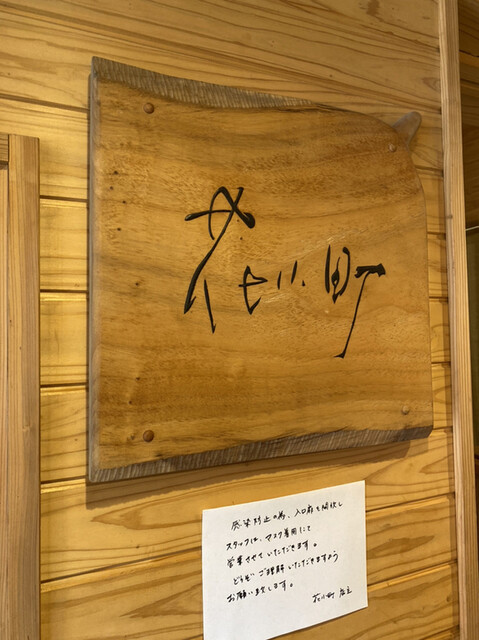 花小町
感染防止の為、入口扉を開放し
スタッフは、マスク着用にて
営業させていただきます。
どうぞ ご理解いただきますよう
お願い致します。
花小町 店主